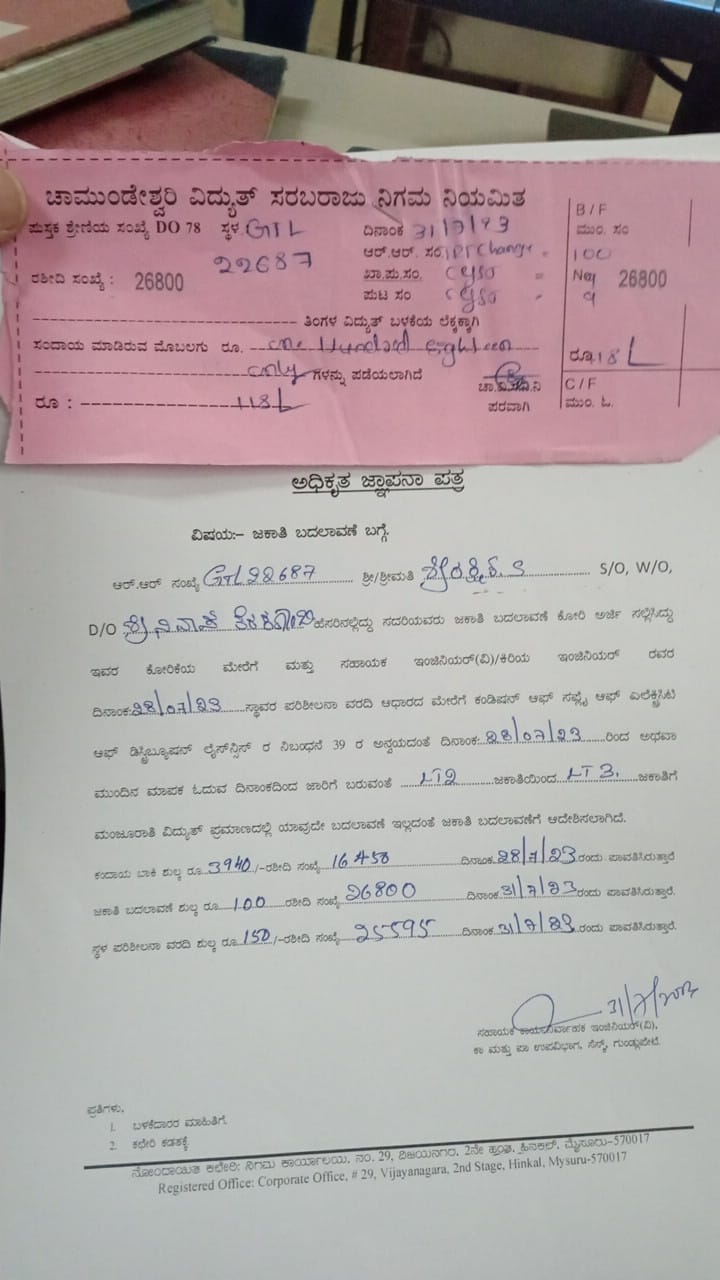 ಚಾಮುಂಡೇಶ್ವರಿ ವಿದ್ಯುತ್ ಸರಬರಾಜು ನಿಗಮ ನಿಯಮಿತ
ಪುಸ್ತಕ ಶ್ರೇಣಿಯ ಸಂಖ್ಯೆ DO 78 ಸ್ಥಳ GTL
22687
ರಶೀದಿ ಸಂಖ್ಯೆ : 26800
ದಿನಾಂಕ 31/7/23
ಆರ್.ಆರ್. ಸಂ Change = 100
ಖಾ.ಪು.ಸಂ. cgst = 9
ಪುಟ ಸಂ sgst - 9
B/F
ಮುಂ. ಸಂ
No 26800
ತಿಂಗಳ ವಿದ್ಯುತ್ ಬಳಕೆಯ ಲೆಕ್ಕಕ್ಕಾಗಿ
ಸಂದಾಯ ಮಾಡಿರುವ ಮೊಬಲಗು ರೂ. one Hundred eighteen
only ಗಳನ್ನು ಪಡೆಯಲಾಗಿದೆ
ರೂ : 118/-
ಚಾ.ವಿ.ಸ.ನಿ.ನಿ
ಪರವಾಗಿ
ರೂ. 118/-
C/F
ಮುಂ. ಓ.
ಅಧಿಕೃತ ಜ್ಞಾಪನಾ ಪತ್ರ
ವಿಷಯ:– ಜಕಾತಿ ಬದಲಾವಣೆ ಬಗ್ಗೆ.
ಆರ್.ಆರ್ ಸಂಖ್ಯೆ GTL22687 ಶ್ರೀ/ಶ್ರೀಮತಿ S/O, W/O,
D/O ಶ್ರೀನಿವಾಸ ಹೆಸರಿನಲ್ಲಿದ್ದು ಸದರಿಯವರು ಜಕಾತಿ ಬದಲಾವಣೆ ಕೋರಿ ಅರ್ಜಿ ಸಲ್ಲಿಸಿದ್ದು
ಇವರ ಕೋರಿಕೆಯ ಮೇರೆಗೆ ಮತ್ತು ಸಹಾಯಕ ಇಂಜಿನಿಯರ್(ವಿ)/ಕಿರಿಯ ಇಂಜಿನಿಯರ್ ರವರ
ದಿನಾಂಕ:28/07/23 ಸ್ಥಾವರ ಪರಿಶೀಲನಾ ವರದಿ ಆಧಾರದ ಮೇರೆಗೆ ಕಂಡಿಷನ್ ಆಫ್ ಸಪ್ಲೈ ಆಫ್ ಎಲೆಕ್ಟ್ರಿಸಿಟಿ
ಆಫ್ ಡಿಸ್ಟ್ರಿಬ್ಯೂಷನ್ ಲೈಸೆನ್ಸಿಸ್ ರ ನಿಬಂಧನೆ 39 ರ ಅನ್ವಯದಂತೆ ದಿನಾಂಕ:28/07/23 ರಿಂದ ಅಥವಾ
ಮುಂದಿನ ಮಾಪಕ ಓದುವ ದಿನಾಂಕದಿಂದ ಜಾರಿಗೆ ಬರುವಂತೆ LT2 ಜಕಾತಿಯಿಂದ LT3. ಜಕಾತಿಗೆ
ಮಂಜೂರಾತಿ ವಿದ್ಯುತ್ ಪ್ರಮಾಣದಲ್ಲಿ ಯಾವುದೇ ಬದಲಾವಣೆ ಇಲ್ಲದಂತೆ ಜಕಾತಿ ಬದಲಾವಣೆಗೆ ಆದೇಶಿಸಲಾಗಿದೆ.
ಕಂದಾಯ ಬಾಕಿ ಶುಲ್ಕ ರೂ 3940/-ರಶೀದಿ ಸಂಖ್ಯೆ 16450 ದಿನಾಂಕ 28/7/23 ರಂದು ಪಾವತಿಸಿರುತ್ತಾರೆ
ಜಕಾತಿ ಬದಲಾವಣೆ ಶುಲ್ಕ ರೂ 100 ರಶೀದಿ ಸಂಖ್ಯೆ 26800 ದಿನಾಂಕ 31/7/23 ರಂದು ಪಾವತಿಸಿರುತ್ತಾರೆ.
ಸ್ಥಳ ಪರಿಶೀಲನಾ ವರದಿ ಶುಲ್ಕ ರೂ 150/-ರಶೀದಿ ಸಂಖ್ಯೆ 25595 ದಿನಾಂಕ 31/7/23 ರಂದು ಪಾವತಿಸಿರುತ್ತಾರೆ.
31/7/2023
ಸಹಾಯಕ ಕಾರ್ಯನಿರ್ವಾಹಕ ಇಂಜಿನಿಯರ್(ವಿ),
ಕಾ ಮತ್ತು ಪಾ ಉಪವಿಭಾಗ, ಸೆಸ್ಕ್, ಗುಂಡ್ಲುಪೇಟೆ.
ಪ್ರತಿಗಳು,
1. ಬಳಕೆದಾರರ ಮಾಹಿತಿಗೆ.
2. ಕಛೇರಿ ಕಡತಕ್ಕೆ
ನೋಂದಾಯಿತ ಕಛೇರಿ: ನಿಗಮ ಕಾರ್ಯಾಲಯ, ನಂ. 29, ವಿಜಯನಗರ, 2ನೇ ಹಂತ, ಹಿನಕಲ್, ಮೈಸೂರು-570017
Registered Office: Corporate Office, # 29, Vijayanagara, 2nd Stage, Hinkal, Mysuru-570017